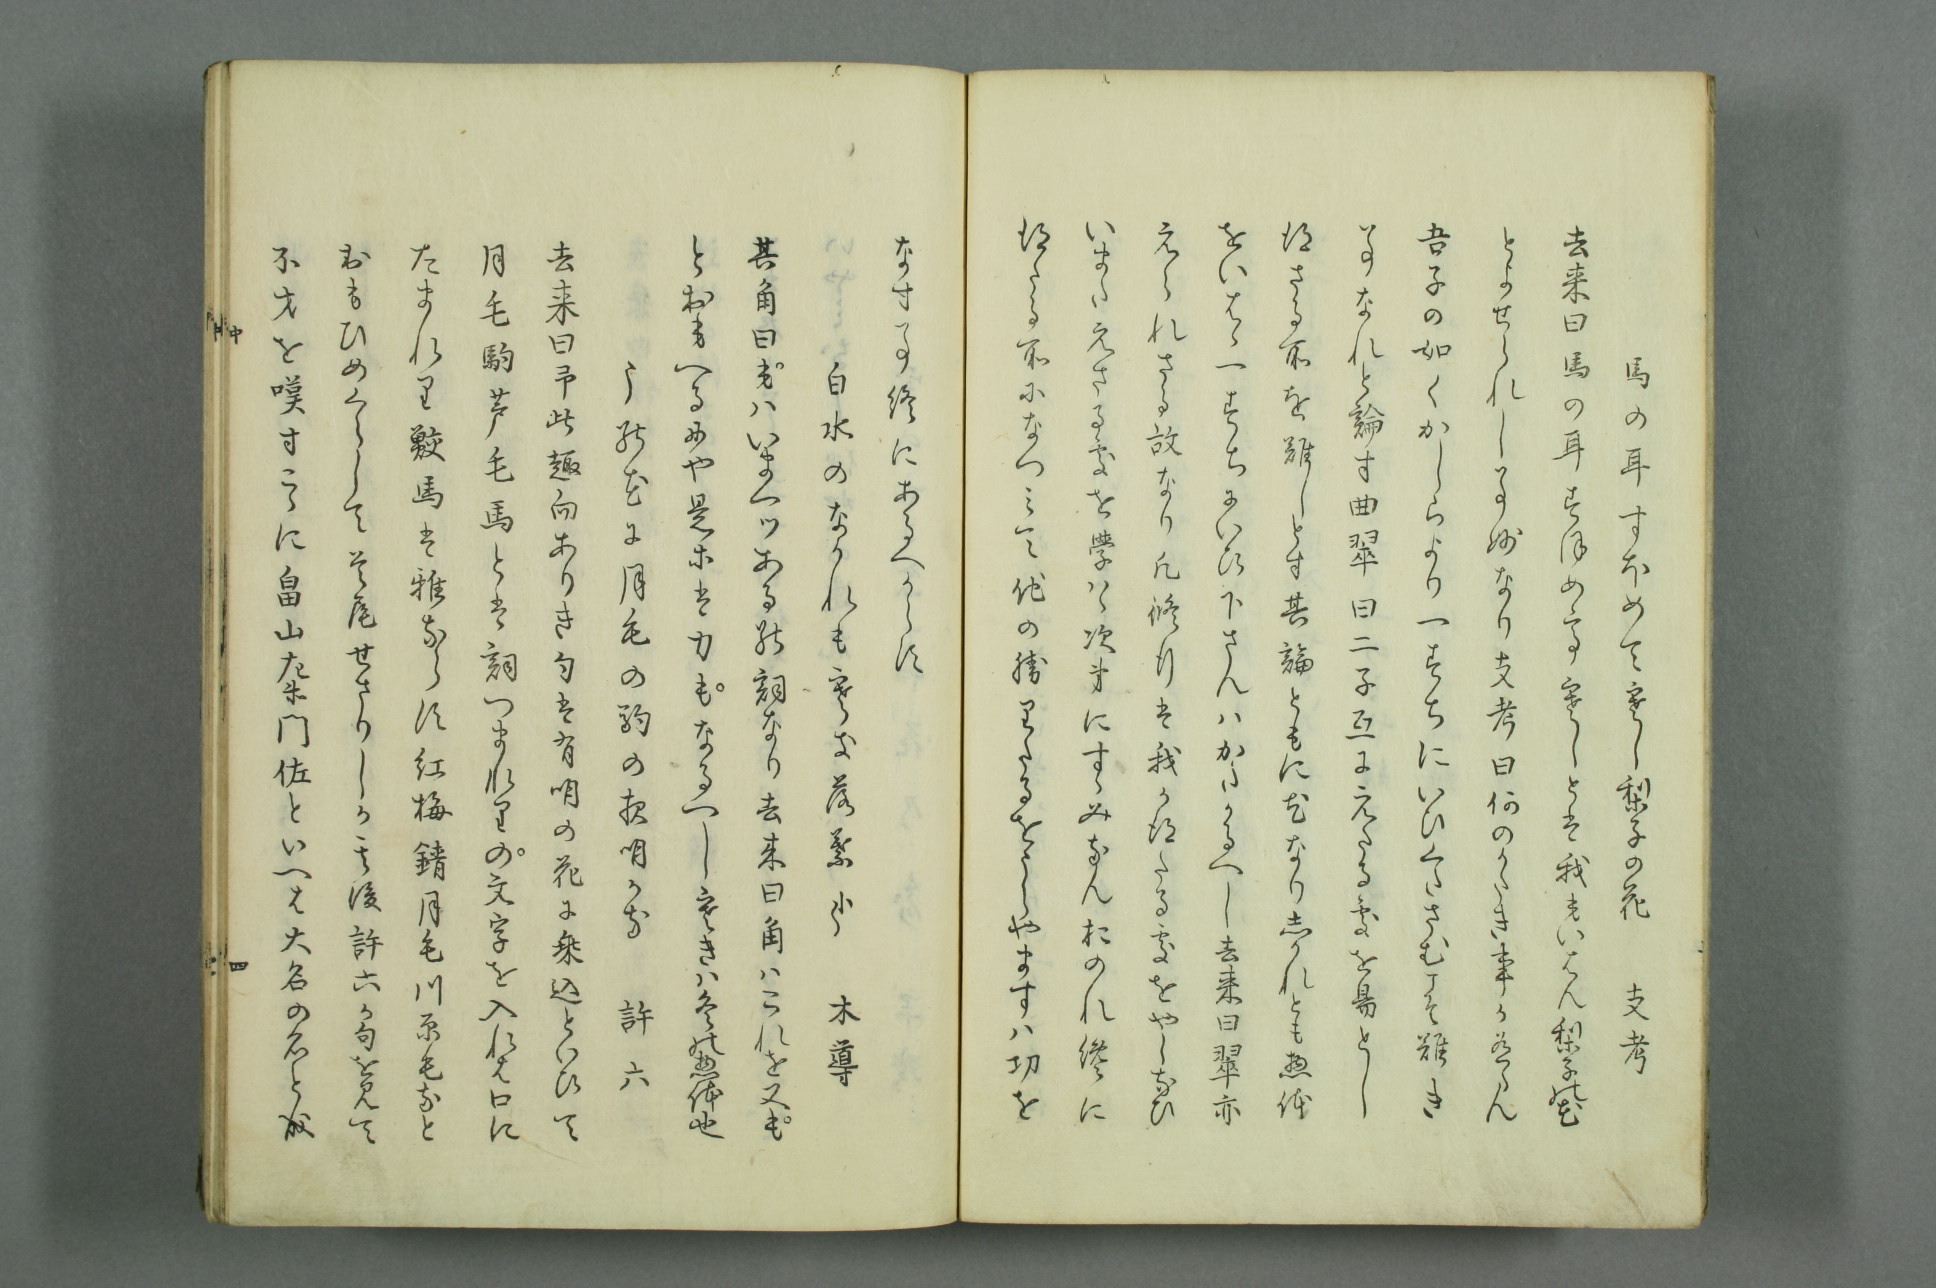 馬の耳すほめて寒し梨子の花　支考
去来曰馬の耳すほめて寒しとは我もいはん梨子の花
とよせられし事妙なり支考曰何のかたき事か有らん
吾子の如くかしらより一すちにいひくたさむこそ難き
事なれと論す曲翠曰二子互に元たる處を易とし
得さる所を難しとす其論ともに尤なり然れとも惣体
をいはゝ一すちにいひ下さんハかたかるへし去来曰翠亦
えられさる故なり凡修行は我か得たる處をやしなひ
いまた元さる處を學はゝ次第にすゝみなんおのれ終に
得たる所になつミて他の勝れたるをうらやますハ功を
なす事終にあるへからす
白水のなかれも寒き落葉哉　木導
其角曰もハいまへツある詞なり去来曰角ハこれを又も
とおもへるにや是等は力もなるへし寒きハ冬の惣体也
うの花に月毛の駒の夜明かな　許六
去来曰予此趣向ありき句は有明の花に乗込といひて
月毛駒芦毛馬とは詞つまれりの文字を入れは口に
たまれり鮫馬は雅ならす紅梅錆月毛川原毛なと
おもひめくらして首尾せさりしか其後許六か句を見て
不才を嘆すまことに畠山左衛門佐といへは大名の名と成